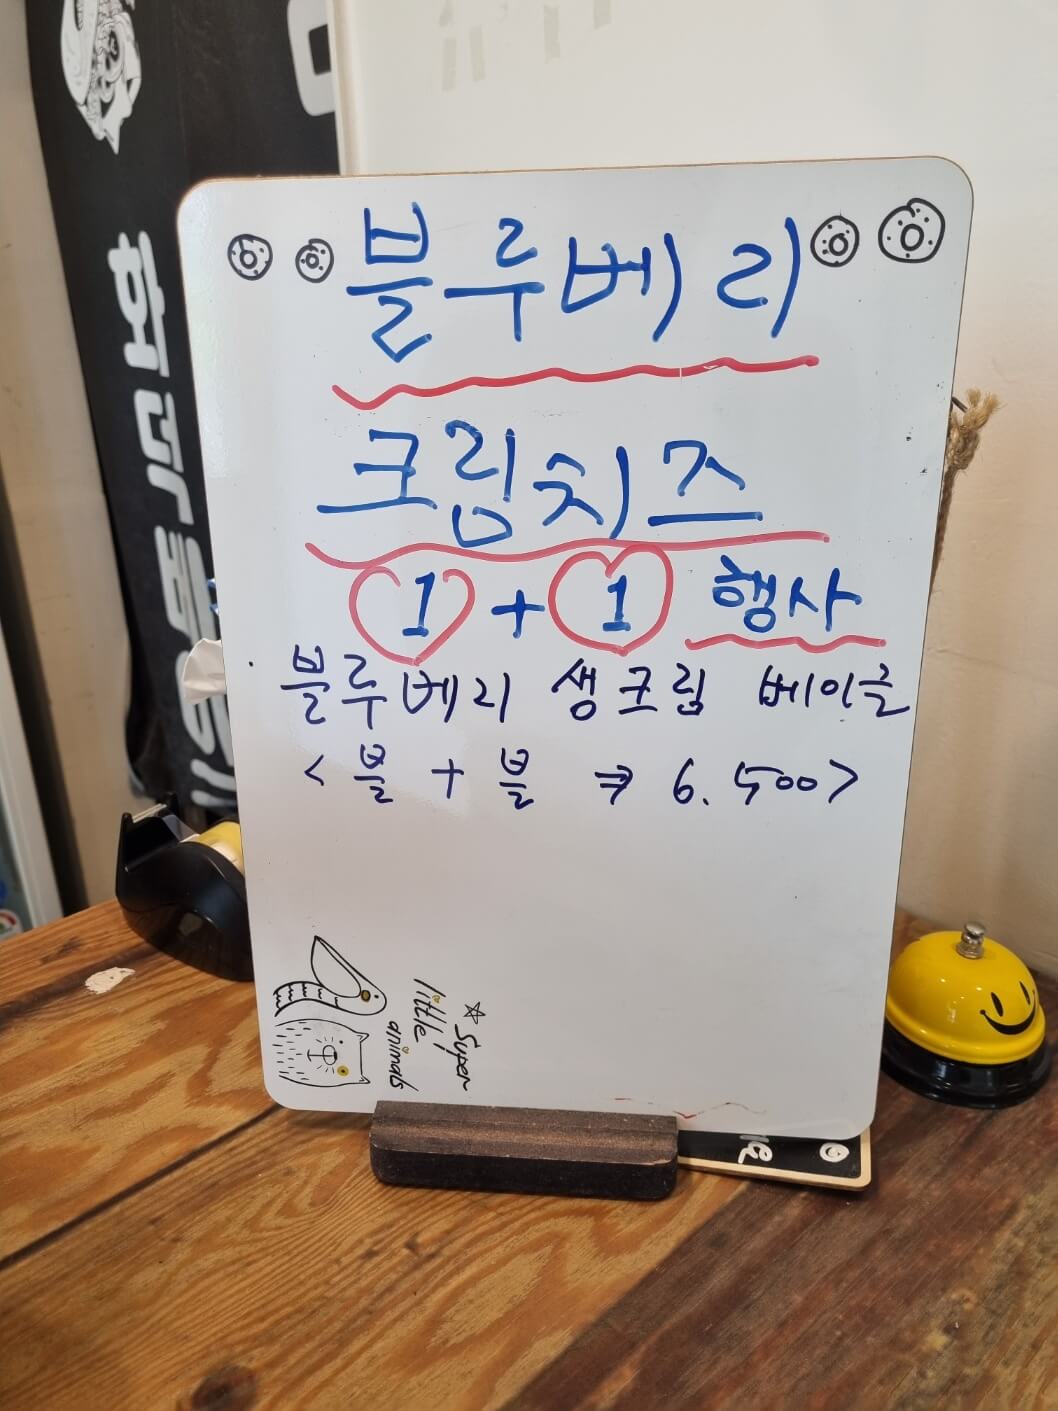 블루베리
크림치즈
1 + 1 행사
블루베리 생크림 베이글
<블 + 블 ⇒ 6.500>
☆Super
little
animals